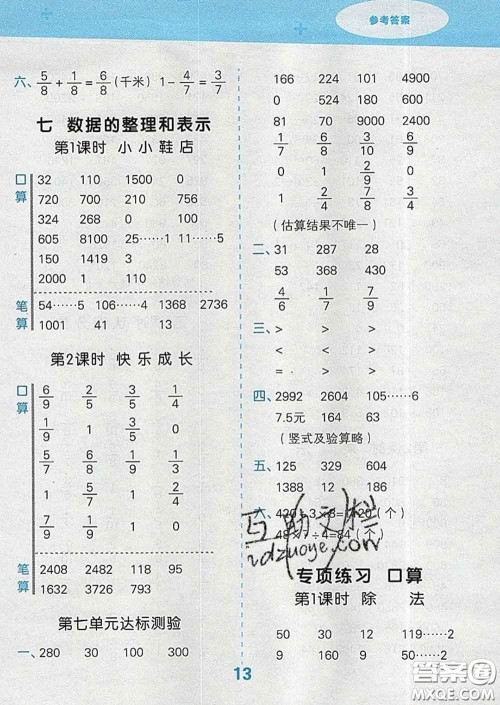 参考答案
六、5/8+1/8=6/8(千米) 1-4/7=3/7
七 数据的整理和表示
第1课时 小小鞋店
口算 32 110 1500 0
720 700 210 756
324 268 0 100
605 8100 25……1 11……5
150 1419 3
2000 1 110
笔算 54……5 106……4 1368 2736
1001 41 13
第2课时 快乐成长
口算 6/9 2/5 3/5 1/4
7/9 1 3/5 0
5/8 2/9 5/7 4/5
1 5/7 1 2/4
7/9 1/9 1 0
笔算 2408 2482 118 95
1632 3726 793
第七单元达标测验
一、280 30 100 300
166 224 101 4900
0 524 180 600
81 70 9000 2400
1/7 7/8 6/9 1/9
0 1 2/9 0
1 4/7 2/8 3/4
(估算结果不唯一)
二、31 287 28
53 368 430
4/6 1/7 6/9
三、> > >
< < <
四、2992 2604 105……6
7.5元 164 63
(竖式及验算略)
五、125 329 604
1388 12 186
六、420÷3×8=1120(个)
48×7÷4=84(个)
互助文档
zidzuoye.com
专项练习 口算
第1课时 除 法
50 30 12 119……2
9 160 9 50……2
13
答案圈
MXQE.COM